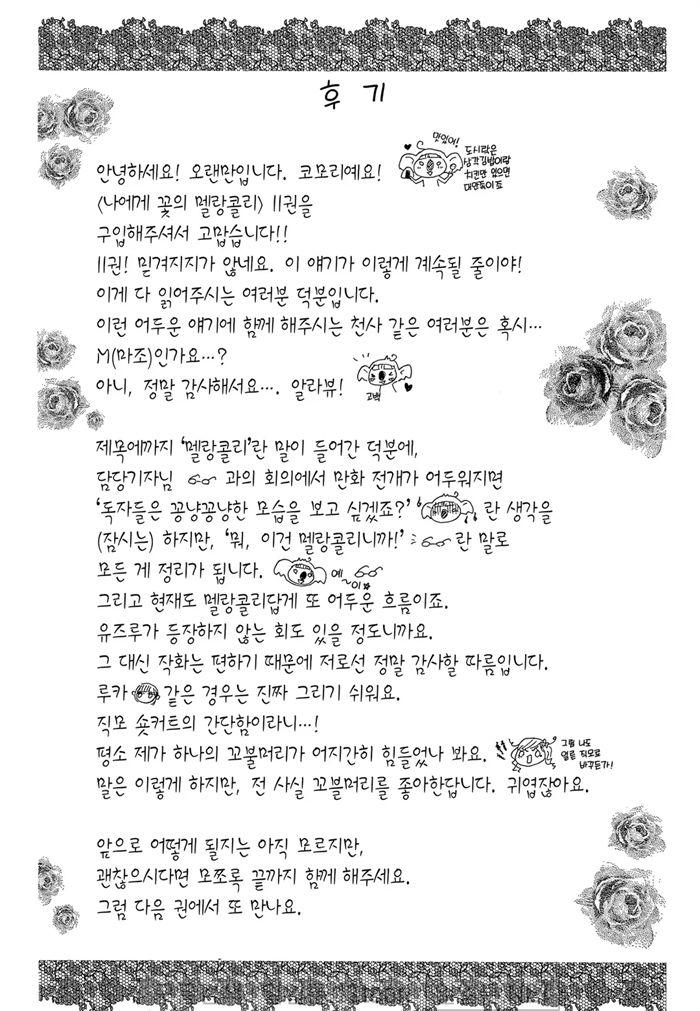 후기
맛있어!
도시락은
삼각김밥이랑
치킨만 있으면
대만족이죠
안녕하세요! 오랜만입니다. 코모리예요!
〈나에게 꽃의 멜랑콜리〉 11권을
구입해주셔서 고맙습니다!!
11권! 믿겨지지가 않네요. 이 얘기가 이렇게 계속될 줄이야!
이게 다 읽어주시는 여러분 덕분입니다.
이런 어두운 얘기에 함께 해주시는 천사 같은 여러분은 혹시…
M(마조)인가요…?
아니, 정말 감사해서요…. 알라뷰!
고백
제목에까지 '멜랑콜리'란 말이 들어간 덕분에,
담당기자님 과의 회의에서 만화 전개가 어두워지면
'독자들은 꽁냥꽁냥한 모습을 보고 싶겠죠?' 란 생각을
(잠시는) 하지만, '뭐, 이건 멜랑콜리니까!' 란 말로
모든 게 정리가 됩니다. 예~이☆
그리고 현재도 멜랑콜리답게 또 어두운 흐름이죠.
유즈루가 등장하지 않는 회도 있을 정도니까요.
그 대신 작화는 편하기 때문에 저로선 정말 감사할 따름입니다.
루카 같은 경우는 진짜 그리기 쉬워요.
직모 숏커트의 간단함이라니…!
평소 제가 하나의 꼬불머리가 어지간히 힘들었나 봐요.
그럼 나도
열로 직모로
바꾸든가!
말은 이렇게 하지만, 전 사실 꼬불머리를 좋아한답니다. 귀엽잖아요.
앞으로 어떻게 될지는 아직 모르지만,
괜찮으시다면 모쪼록 끝까지 함께 해주세요.
그럼 다음 권에서 또 만나요.